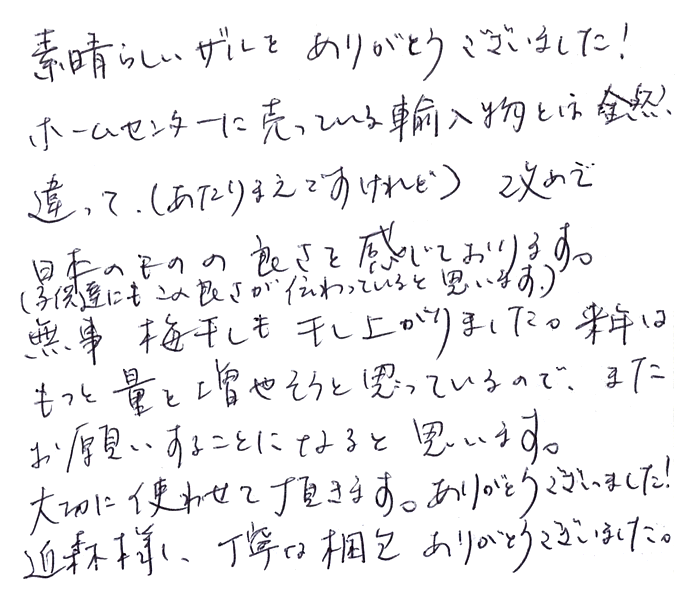 素晴らしいザルを ありがとうございました!
ホームセンターに売っている輸入物とは 全然
違って、(あたりまえですけれど) 改めて
日本のものの 良さを感じております。
(子供達にもこの良さが伝わっていると思います。)
無事 梅干しも 干し上がりました。来年は
もっと量を増やそうと思っているので、また
お願いすることになると思います。
大切に使わせて頂きます。ありがとうございました!
近森様、丁寧な梱包 ありがとうございました。